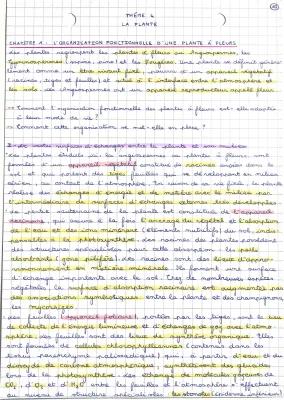 THÈME 4
LA PLANTE
CHAPITRE 1 : L'ORGANISATION FONCTIONNELLE D'UNE PLANTE À FLEURS
Les plantes regroupent les plantes à fleurs ou Angiospermes, les
Gymnospermes et les Fougères. Une plante se définit généra-
lement comme un être vivant fixé, pourvu d'un appareil végétatif
(racines, tiges et feuilles) et situé à l'interface entre l'atmosphère et
les sols. Les Angiospermes ont un appareil reproducteur appelé fleur.
→ Comment l'organisation fonctionnelle des plantes à fleurs est-elle adaptée
à leur mode de vie ?
→ Comment cette organisation se met-elle en place ?
surfaces d'échanges entre la plante et son milieu
Les plantes étudiées ou plantes à fleurs, sont
appareil végétatif constitué de racines dans le
sol et que portent des tiges feuilles qui se développent en milieu
aérien, au contact de l'atmosphère. En raison de sa vie fixée, la plante
réalise des échanges d'énergie et de matière avec le milieu par
l'intermédiaire de surfaces d'échanges externes très développées.
La partie souterraine de la plante est constituée de l'appareil
racinaire, qui assure à la fois l'ancrage du végétal et l'absorption
de l'eau et des ions minéraux (éléments nutritifs) du sol, indis-
pensables à la photosynthèse. Les racines des plantes possèdent
des structures spécialisées pour cette absorption : les poils
absorbants (zone pilifère). Les racines sont des lieux d'appro-
visionnement en matière minérale. Ils forment une surface
d'échange importante avec le sol. Chez de nombreuses espèces
végétales, la surface d'absorption racinaire est augmentée par
des associations symbiotiques entre la plante et des champignons,
les mycorhizes.
Les feuilles (appareil foliaire), portées par les tiges, sont le lieu
de collecte de l'énergie lumineuse et d'échanges de gaz avec l'atmo-
sphère. Les feuilles sont des lieux de synthèse organique. Elles
sont formées de cellules chlorophylliennes (contenues dans les
tissus parenchyme palissadique) qui, à partir d'eau et du
dioxyde de carbone atmosphérique, synthétisent des glucides
lors de la photosynthèse. Les échanges de molécules gazeuses de
CO₂, d'O₂ et d'H₂O entre les feuilles et l'atmosphère s'effectuent
au niveau de structures spécialisées : les stomates (épiderme inférieur)